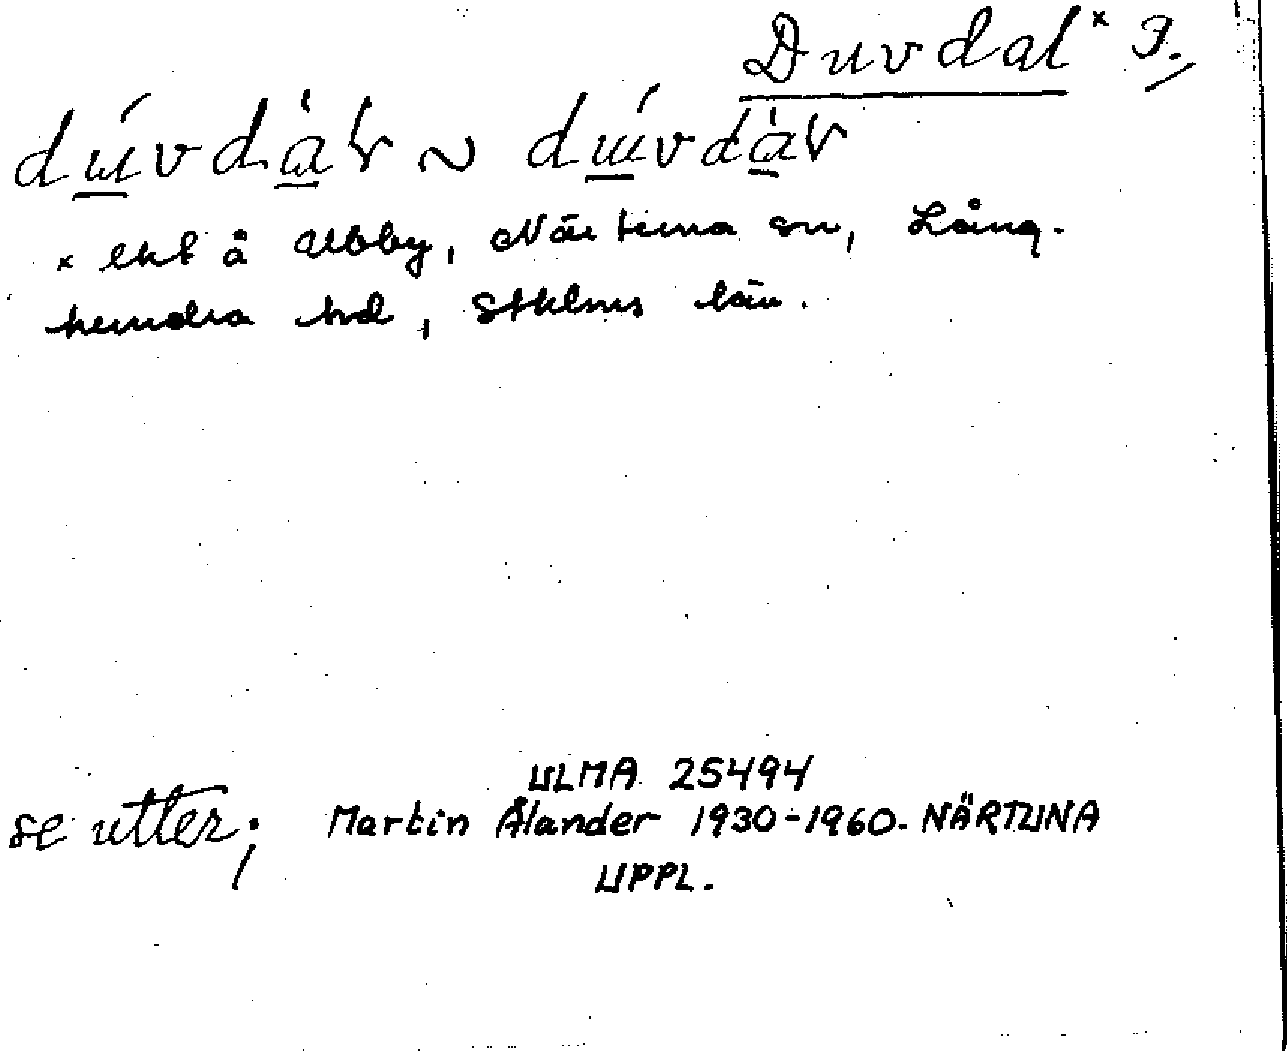 Duvdal x 9.
dúvdàl ~ dúvdàl
x lht å Ubby, Närtuna sn, Lång-
hundra hd, Sthlms län.
ULMA 25494
se utter; Martin Ålander 1930-1960. NÄRTUNA
UPPL.